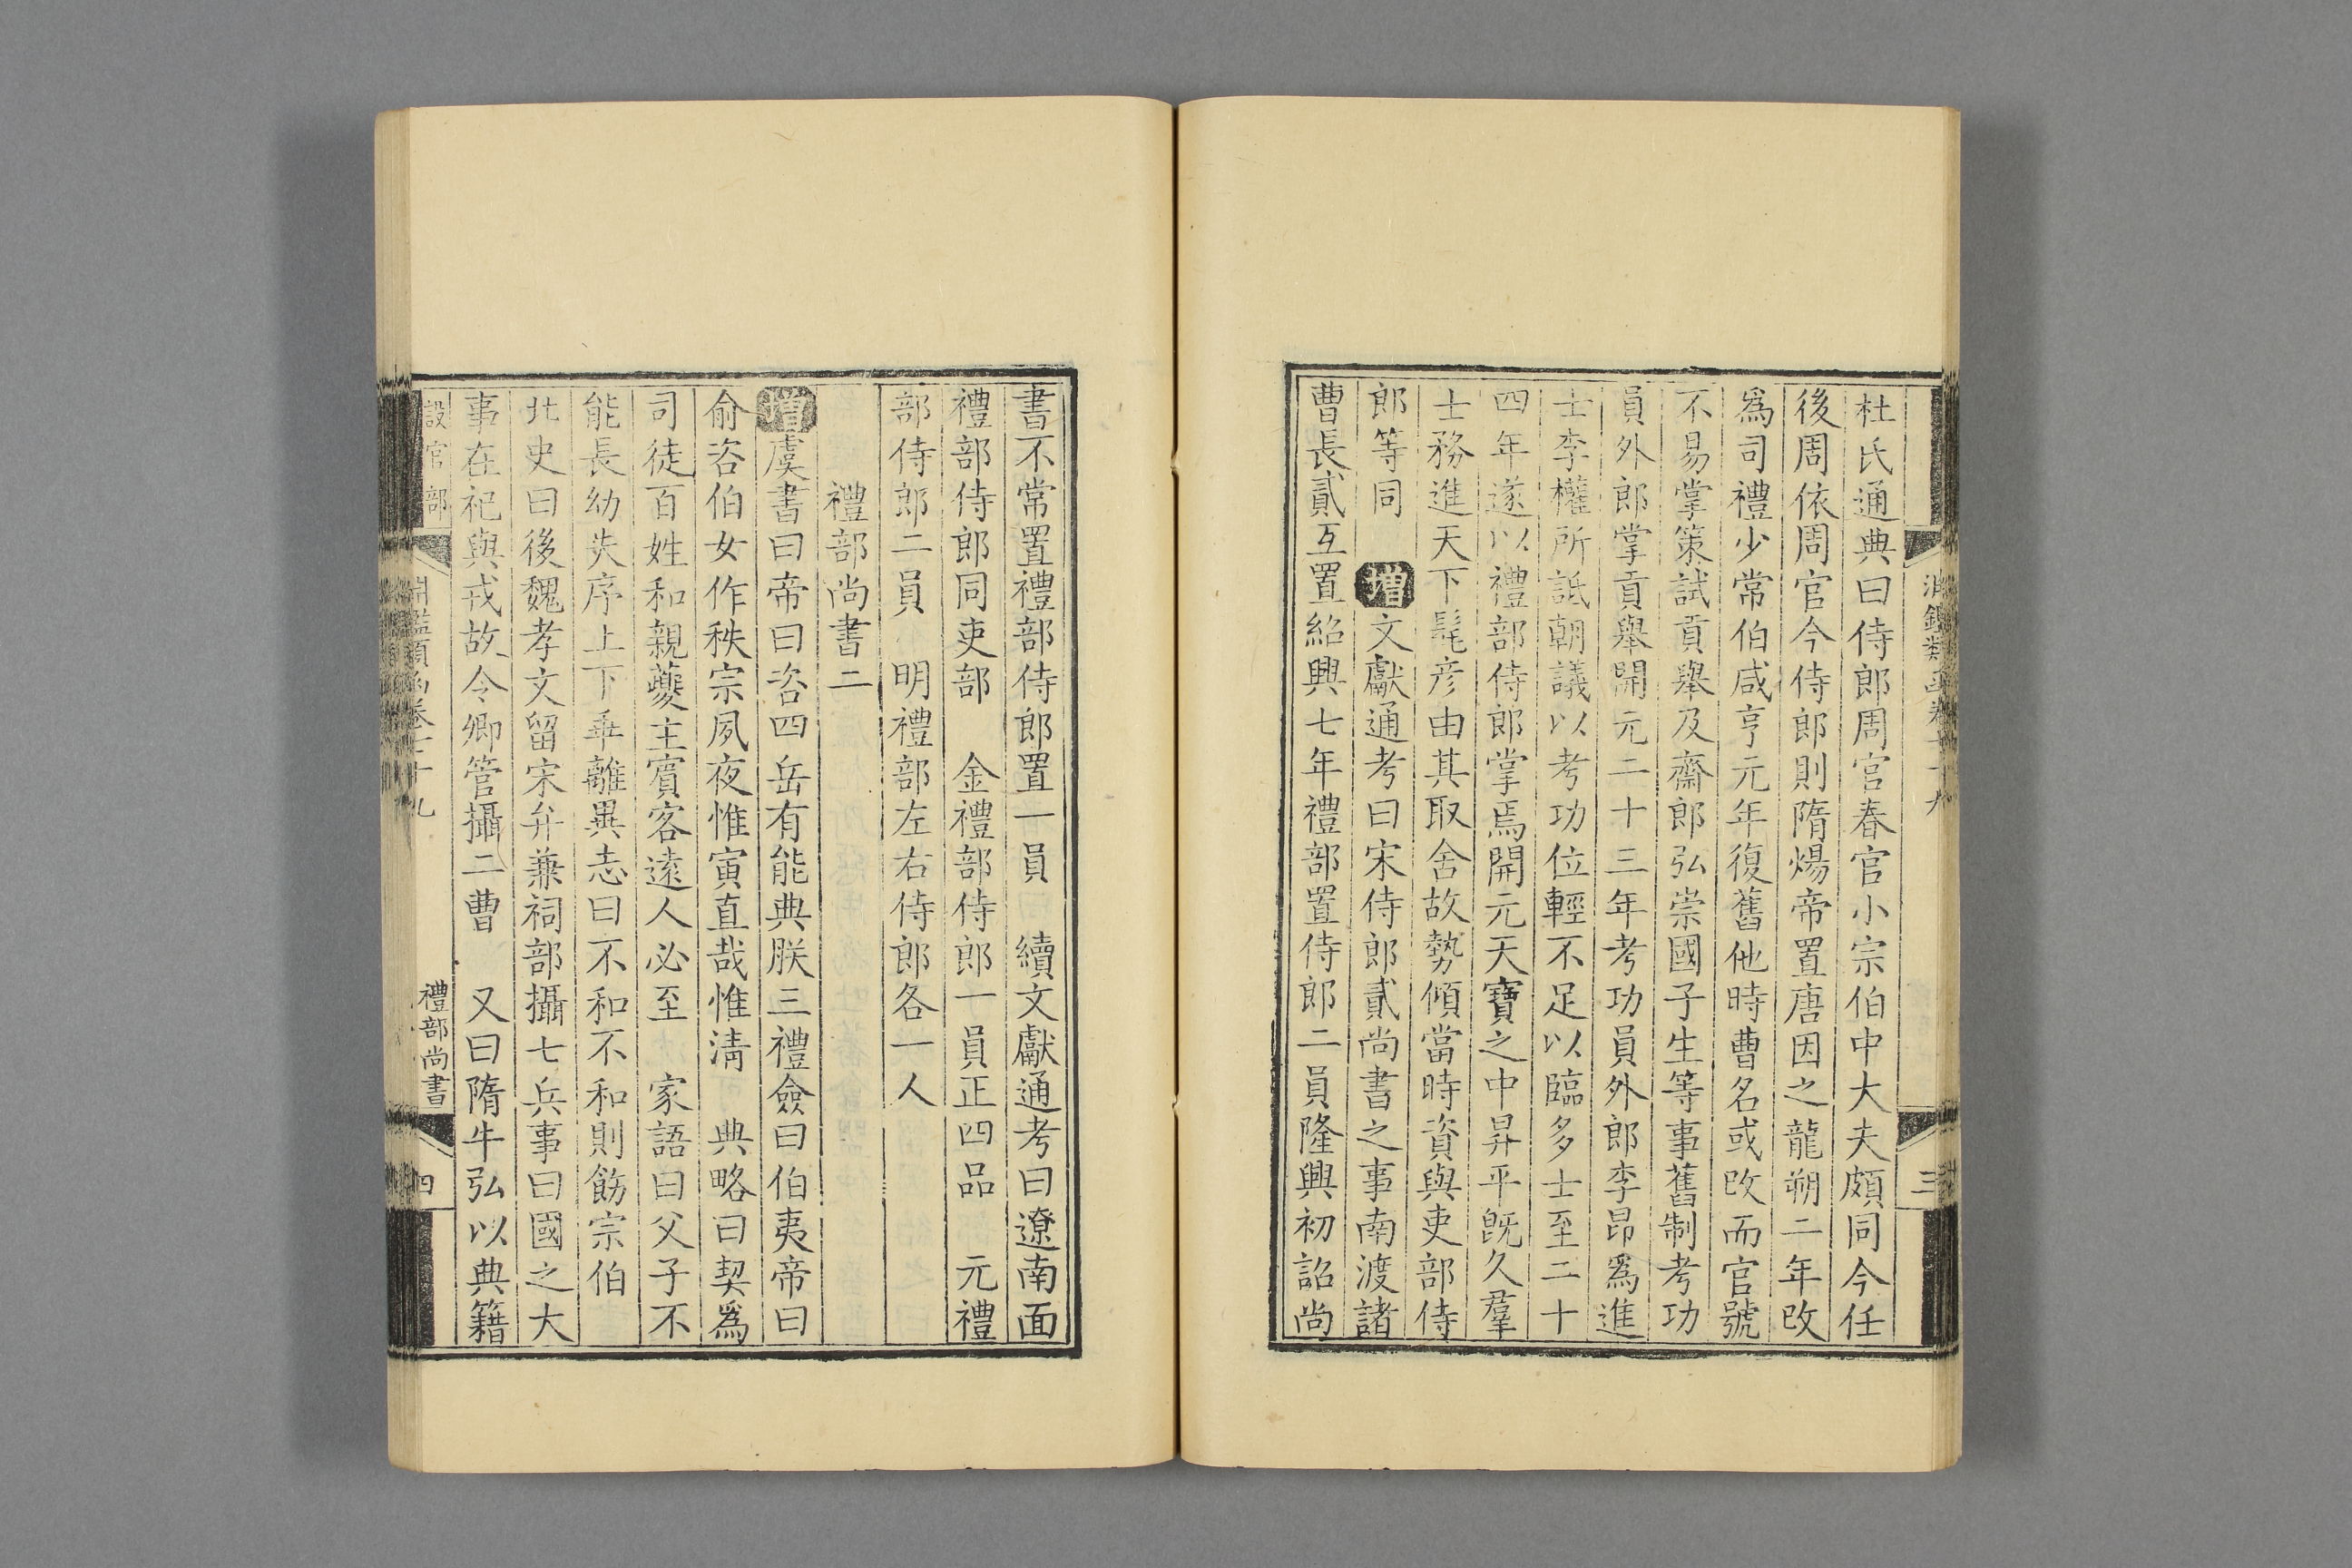 杜氏通典曰侍郎周官春官小宗伯中大夫頗同今任
後周依周官今侍郎則隋煬帝置唐因之龍朔二年改
爲司禮少常伯咸亨元年復舊他時曹名或改而官號
不易掌策試貢舉及齋郎弘崇國子生等事舊制考功
員外郎掌貢舉開元二十三年考功員外郎李昂爲進
士李權所詆朝議以考功位輕不足以臨多士至二十
四年遂以禮部侍郎掌焉開元天寶之中昇平既久羣
士務進天下髦彦由其取舍故勢傾當時資與吏部侍
郎等同 增文獻通考曰宋侍郎貳尚書之事南渡諸
曹長貳互置紹興七年禮部置侍郎二員隆興初詔尚
三
書不常置禮部侍郎置一員 續文獻通考曰遼南面
禮部侍郎同吏部 金禮部侍郎一員正四品 元禮
部侍郎二員 明禮部左右侍郎各一人
禮部尚書二
增虞書曰帝曰咨四岳有能典朕三禮僉曰伯夷帝曰
俞咨伯女作秩宗夙夜惟寅直哉惟清 典略曰契爲
司徒百姓和親夔主賓客遠人必至 家語曰父子不
能長幼失序上下乖離異志曰不和不和則飭宗伯
北史曰後魏孝文留宋弁兼祠部攝七兵事曰國之大
事在祀與戎故令卿管攝二曹 又曰隋牛弘以典籍
設官部
淵鑑類函卷七十九
禮部尚書
四